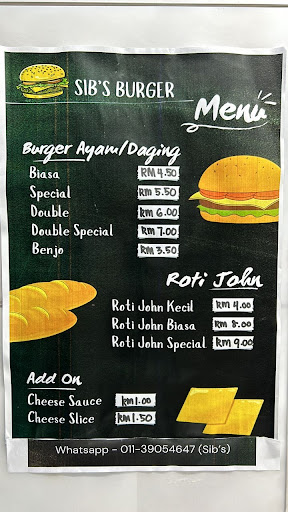 SIB'S BURGER
Menu
Burger Ayam/Daging
Biasa RM 4.50
Special RM 5.50
Double RM 6.00
Double Special RM 7.00
Benjo RM 3.50
Roti John
Roti John Kecil RM 4.00
Roti John Biasa RM 8.00
Roti John Special RM 9.00
Add On
Cheese Sauce RM1.00
Cheese Slice RM1.50
Whatsapp - 011-39054647 (Sib's)